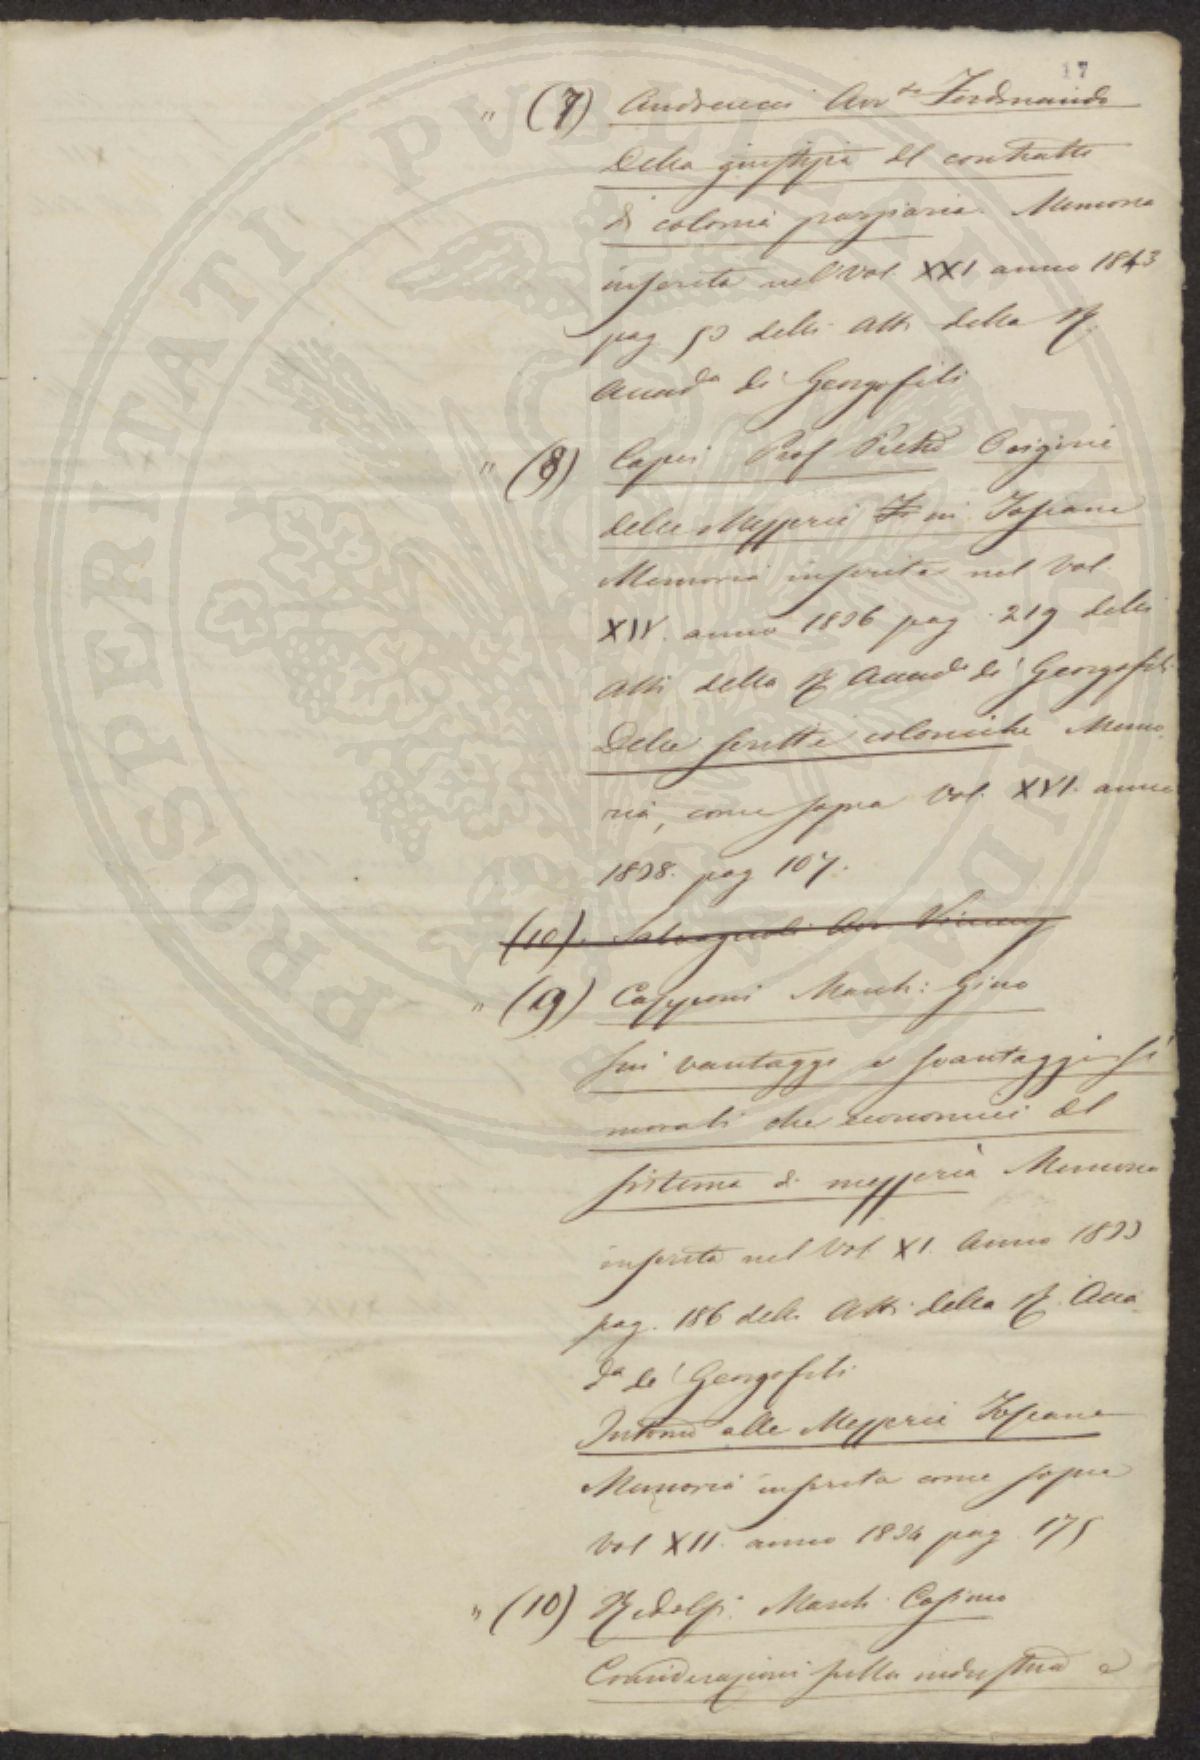 PROSPERITATI PVBLICAE AVGENDAE
17
" (7) Andreucci Avv.to Ferdinando
Della giustizia del contratto
di colonia parziaria. Memoria
inserita nel Vol. XXI anno 1843
pag 50 delli Atti della R.
Accad.a de' Georgofili
" (8) Capei Prof Pietro Origine
delle Mezzerie in Toscana
Memoria inserita nel Vol.
XIV. anno 1836 pag. 219 delli
Atti della R Accad.a de' Georgofili
Delle scritte coloniche Memo
ria, come sopra Vol. XVI. anno
1838. pag 107.
(10). Salvagnoli Avv Vincenz
" (9) Capponi March: Gino
Sui vantaggi e svantaggi sì
morali che economici del
sistema di mezzeria Memoria
inserita nel Vol XI. Anno 1833
pag. 186 delli Atti della R. Acca
d.a de' Georgofili
Intorno alle Mezzerie Toscane
Memoria inserita come sopra
Vol XII. anno 1834 pag. 175
" (10) Ridolfi March. Cosimo
Considerazioni sulla industria e